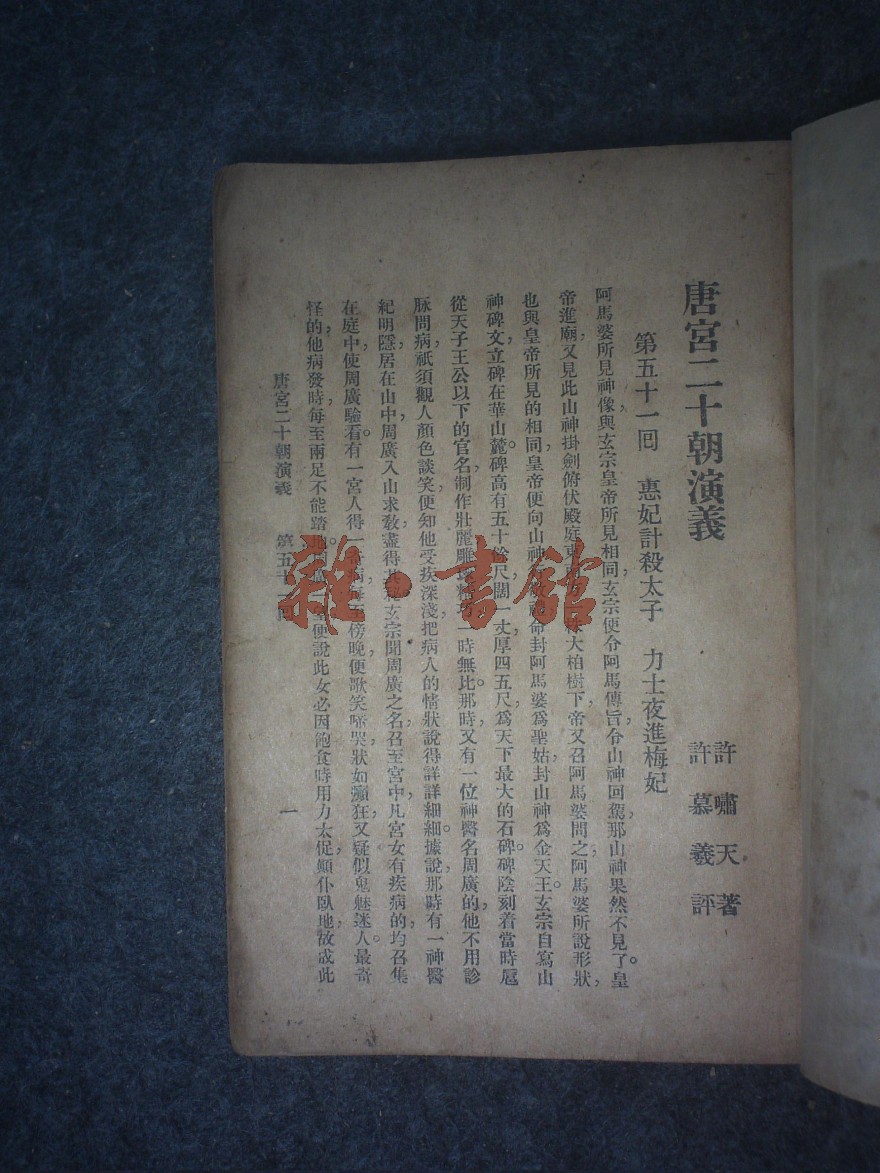 唐宮二十朝演義
許嘯天著
許慕羲評
第五十一回 惠妃計殺太子 力士夜進梅妃
阿馬婆所見神像，與玄宗皇帝所見相同，玄宗便令阿馬傳旨，令山神回駕，那山神果然不見了。皇
帝進廟，又見此山神掛劍俯伏殿庭東南大柏樹下，帝又召阿馬婆問之，阿馬婆所說形狀，
也與皇帝所見的相同，皇帝便向山神命封阿馬婆為聖姑，封山神為金天王。玄宗自寫山
神碑文，立碑在華山麓。碑高有五十餘尺，闊一丈，厚四五尺，為天下最大的石碑。碑陰刻着當時扈
從天子王公以下的官名，制作壯麗，雕一時無比。那時又有一位神醫，名周廣的，他不用診
脉問病，祇須觀人顏色談笑，便知他受疾深淺，把病人的情狀，說得詳詳細細。據說那時有一神醫
紀明，隱居在山中，周廣入山求教，盡得其玄宗聞周廣之名，召至宮中，凡宮女有疾病的，均召集
在庭中，使周廣驗看。有一宮人得一奇病，每至傍晚，便歌笑啼哭，狀如癲狂，又疑似鬼魅迷人。最奇
怪的，他病發時，每至兩足不能踏地。周廣便說此女必因飽食時用力太促，顛仆臥地，故成此
唐宮二十朝演義 第五十一回
一
雜·書館